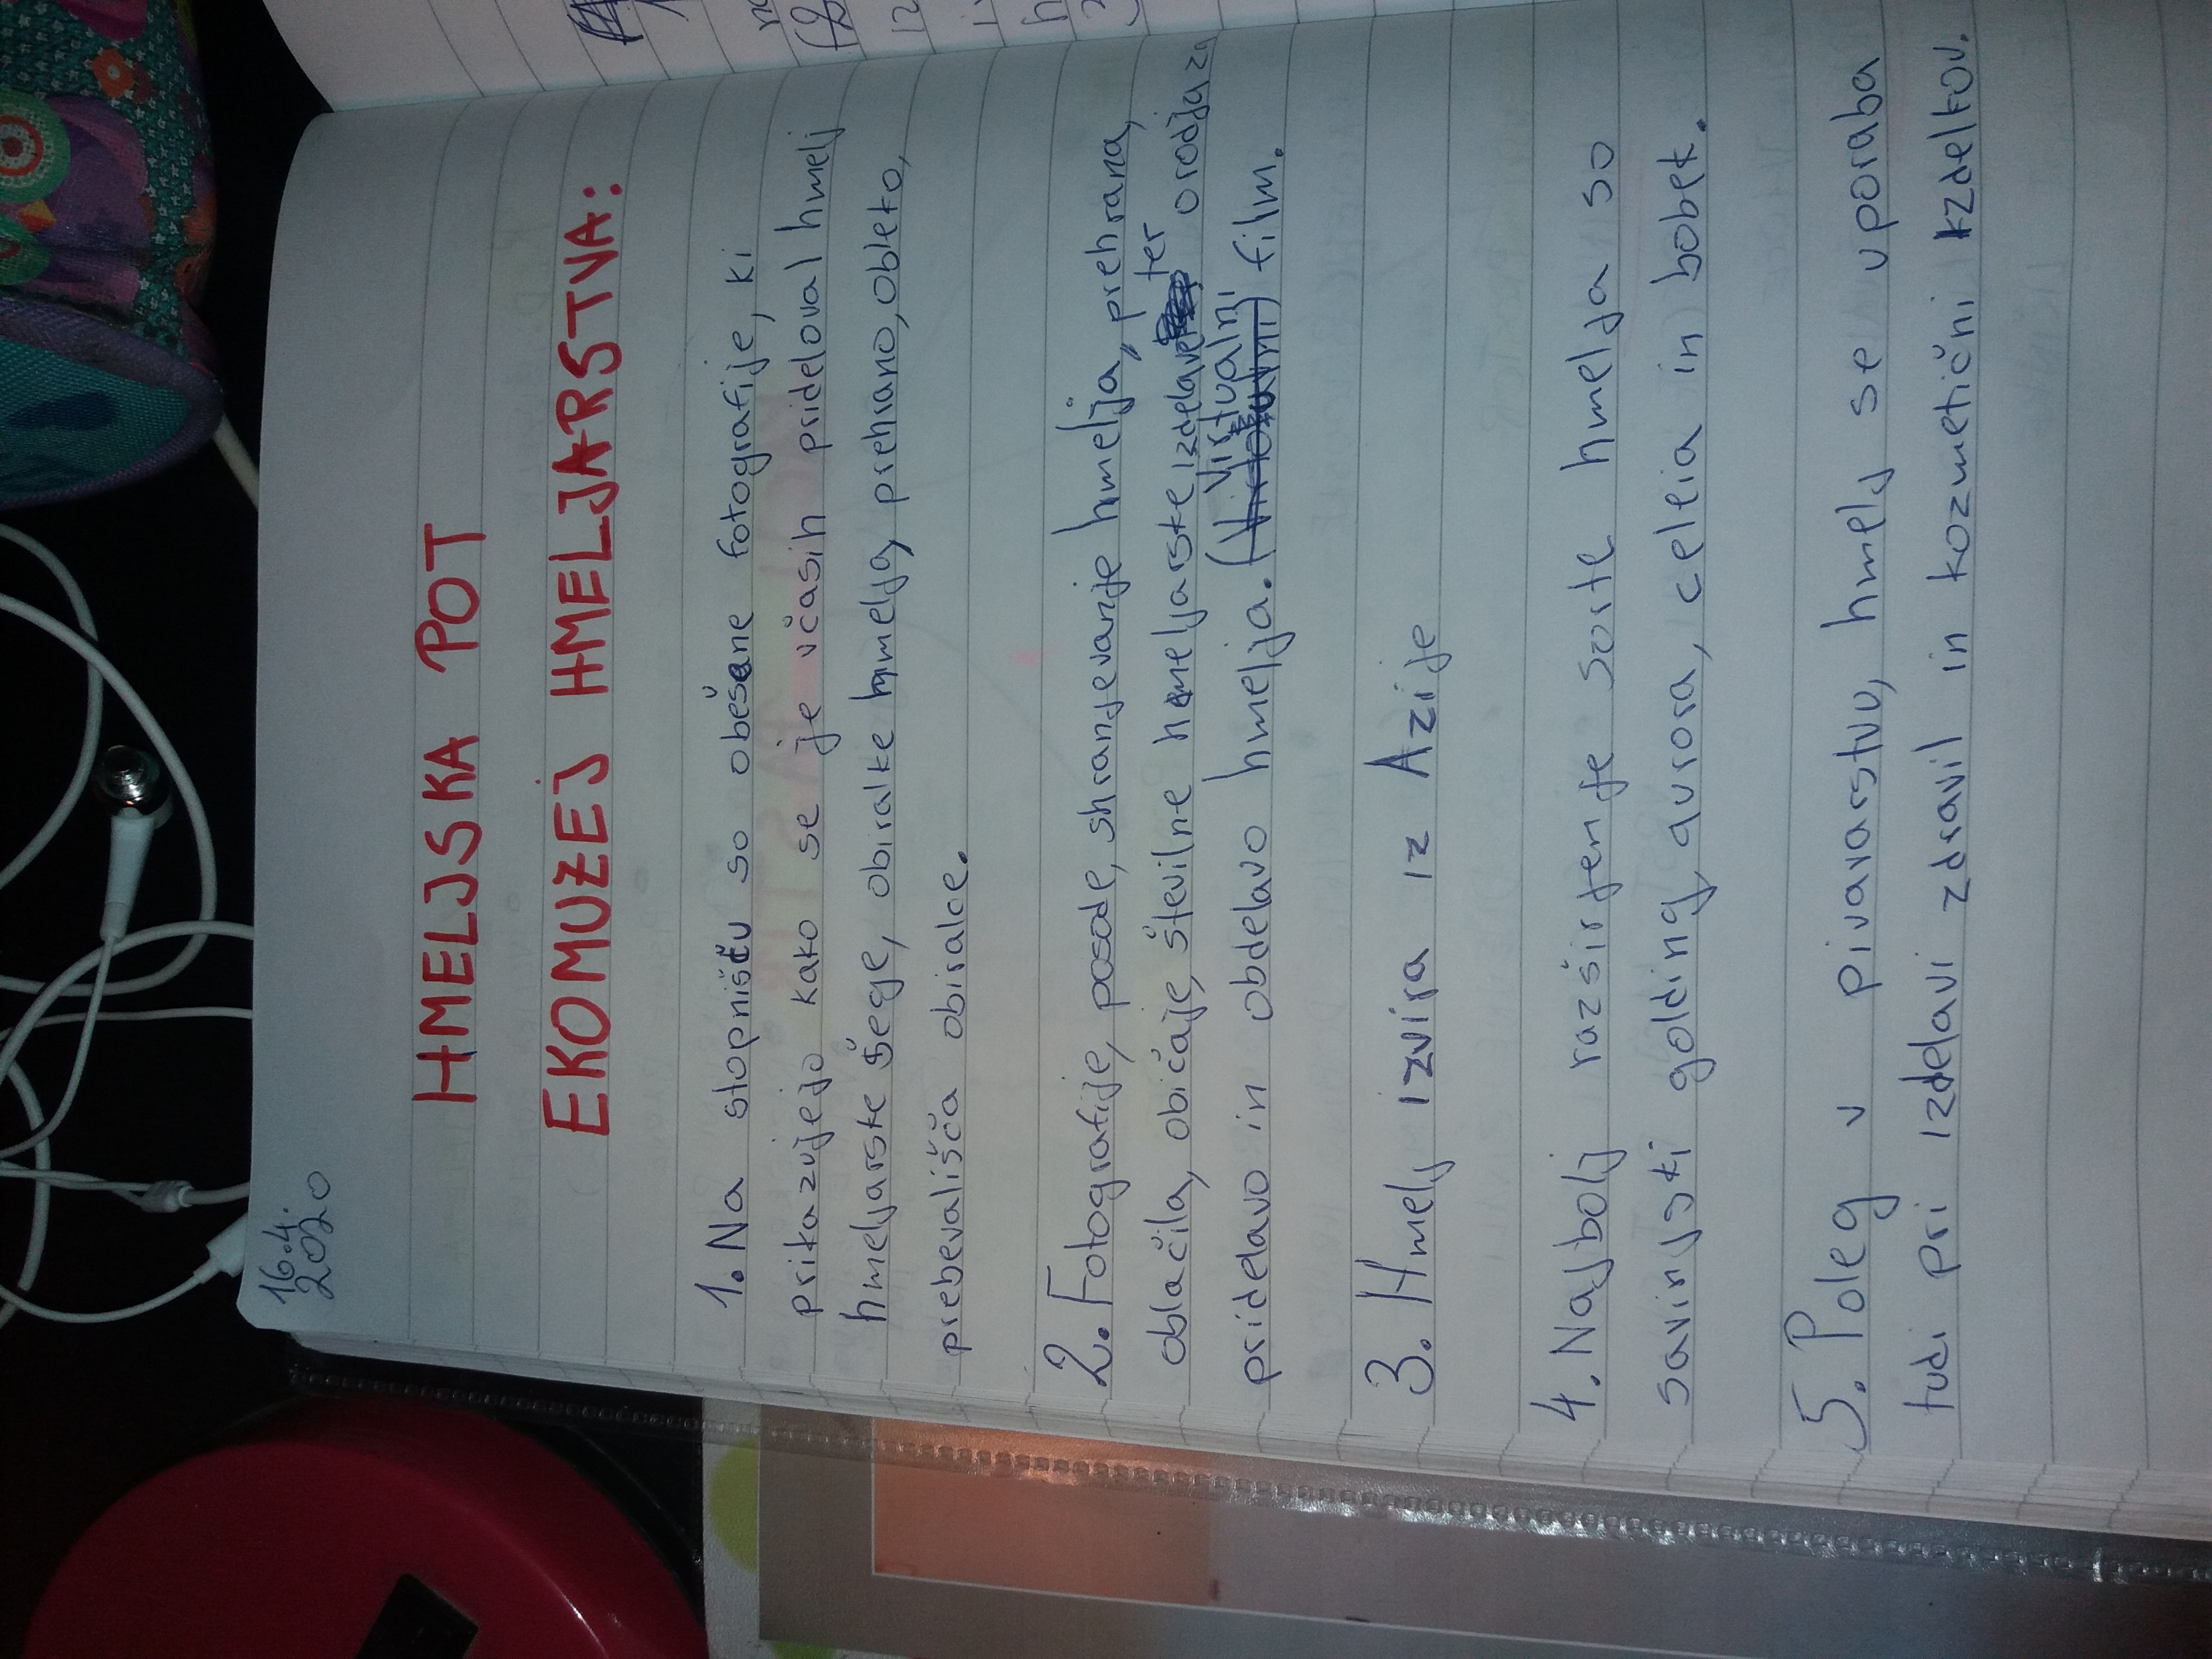 16.4.
2020
HMELJSKA POT
EKOMUZEJ HMELJARSTVA:
1. Na stopnišču so obešene fotografije, ki
prikazujejo kako se je včasih prideloval hmelj
hmeljarske šege, obiralke hmelja, prehrano, obleko,
prebevališča obiralce.
2. Fotografije, posode, shranjevanje hmelja, prehrana,
oblačila, običaje, številne hmeljarske izdelave ter orodja za
pridelavo in obdelavo hmelja. (virtualni) film.
3. Hmelj izvira iz Azije
4. Najbolj razširjenje sorte hmelja so
savinjski golding, aurora, celeia in bobek.
5. Poleg v pivavarstvu, hmelj se uporaba
tudi pri izdelavi zdravil in kozmetični izdelkov.
12